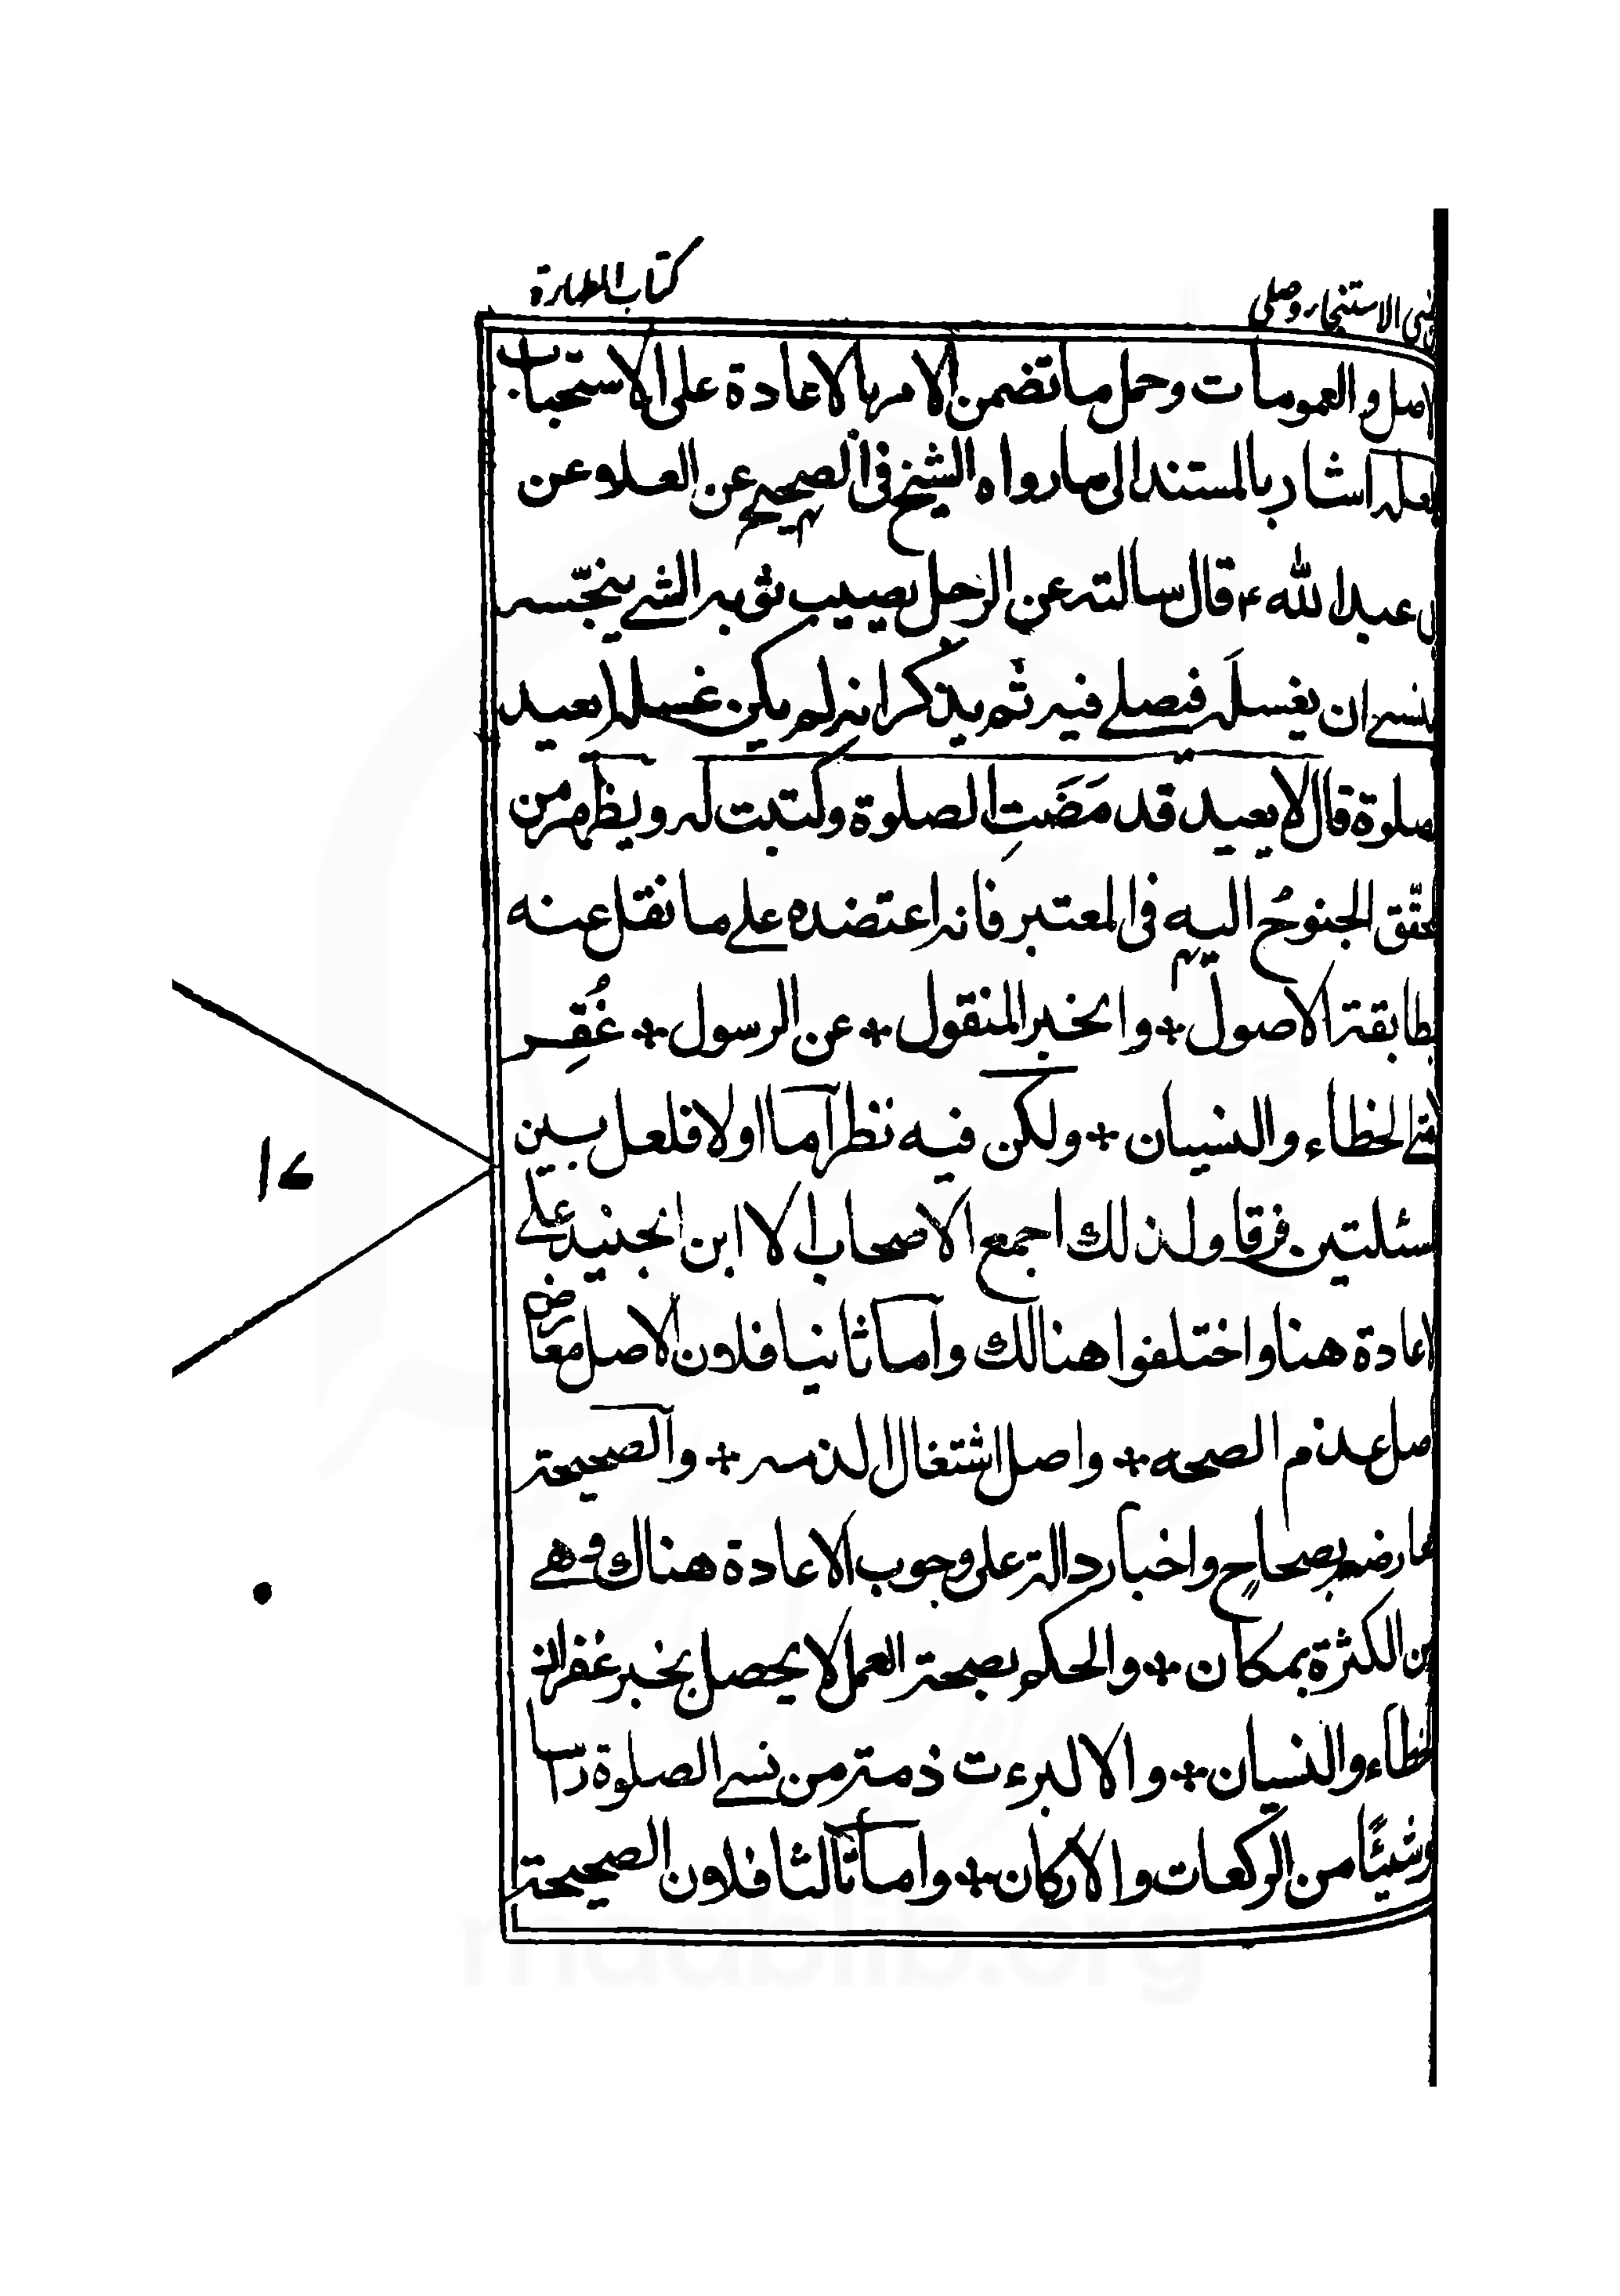 الاستنجاء وصلى
كتاب الطهارة
والعمومات وحمل ما تضمن الامر بالاعادة على الاستحباب
اشار بالمستند الى ما رواه الشيخ فى الصحيح عن العلاء عن
عبد الله ع قال سالته عن الرجل يصيب ثوبه الشے ينجّسه
ان يغسله فيصلے فيه ثم يذكر انه لم يكن غسله ايعيد
قال لا يعيد قد مَضَتِ الصلوة وكتبت له ويظهر من
الجنوحُ اليه فى المعتبر فانه اعتضده علے ما نقل عنه
الاصول + والخبر المنقول + عن الرسول + غُفِر
الخطاء والنسيان + ولكن فيه نظر آما اولا فلعل بين
فرقا ولذلك اجمع الاصحاب الا ابن الجنيد علے
هنا واختلفوا هنالك وآما ثانيا فلان الاصل معارض
عدم الصحه + واصل اشتغال الذمه + والصحيحة
بصحاحٍ واخبار دالة على وجوب الاعادة هناك وهے
من الكثرة بمكان + والحكم بصحة العمل لا يحصل بخبر غفران
والنسيان + والا لبرءت ذمة من نسے الصلوة راسا
من الركعات والاركان + واما ثالثا فلان الصحيحة
١٧